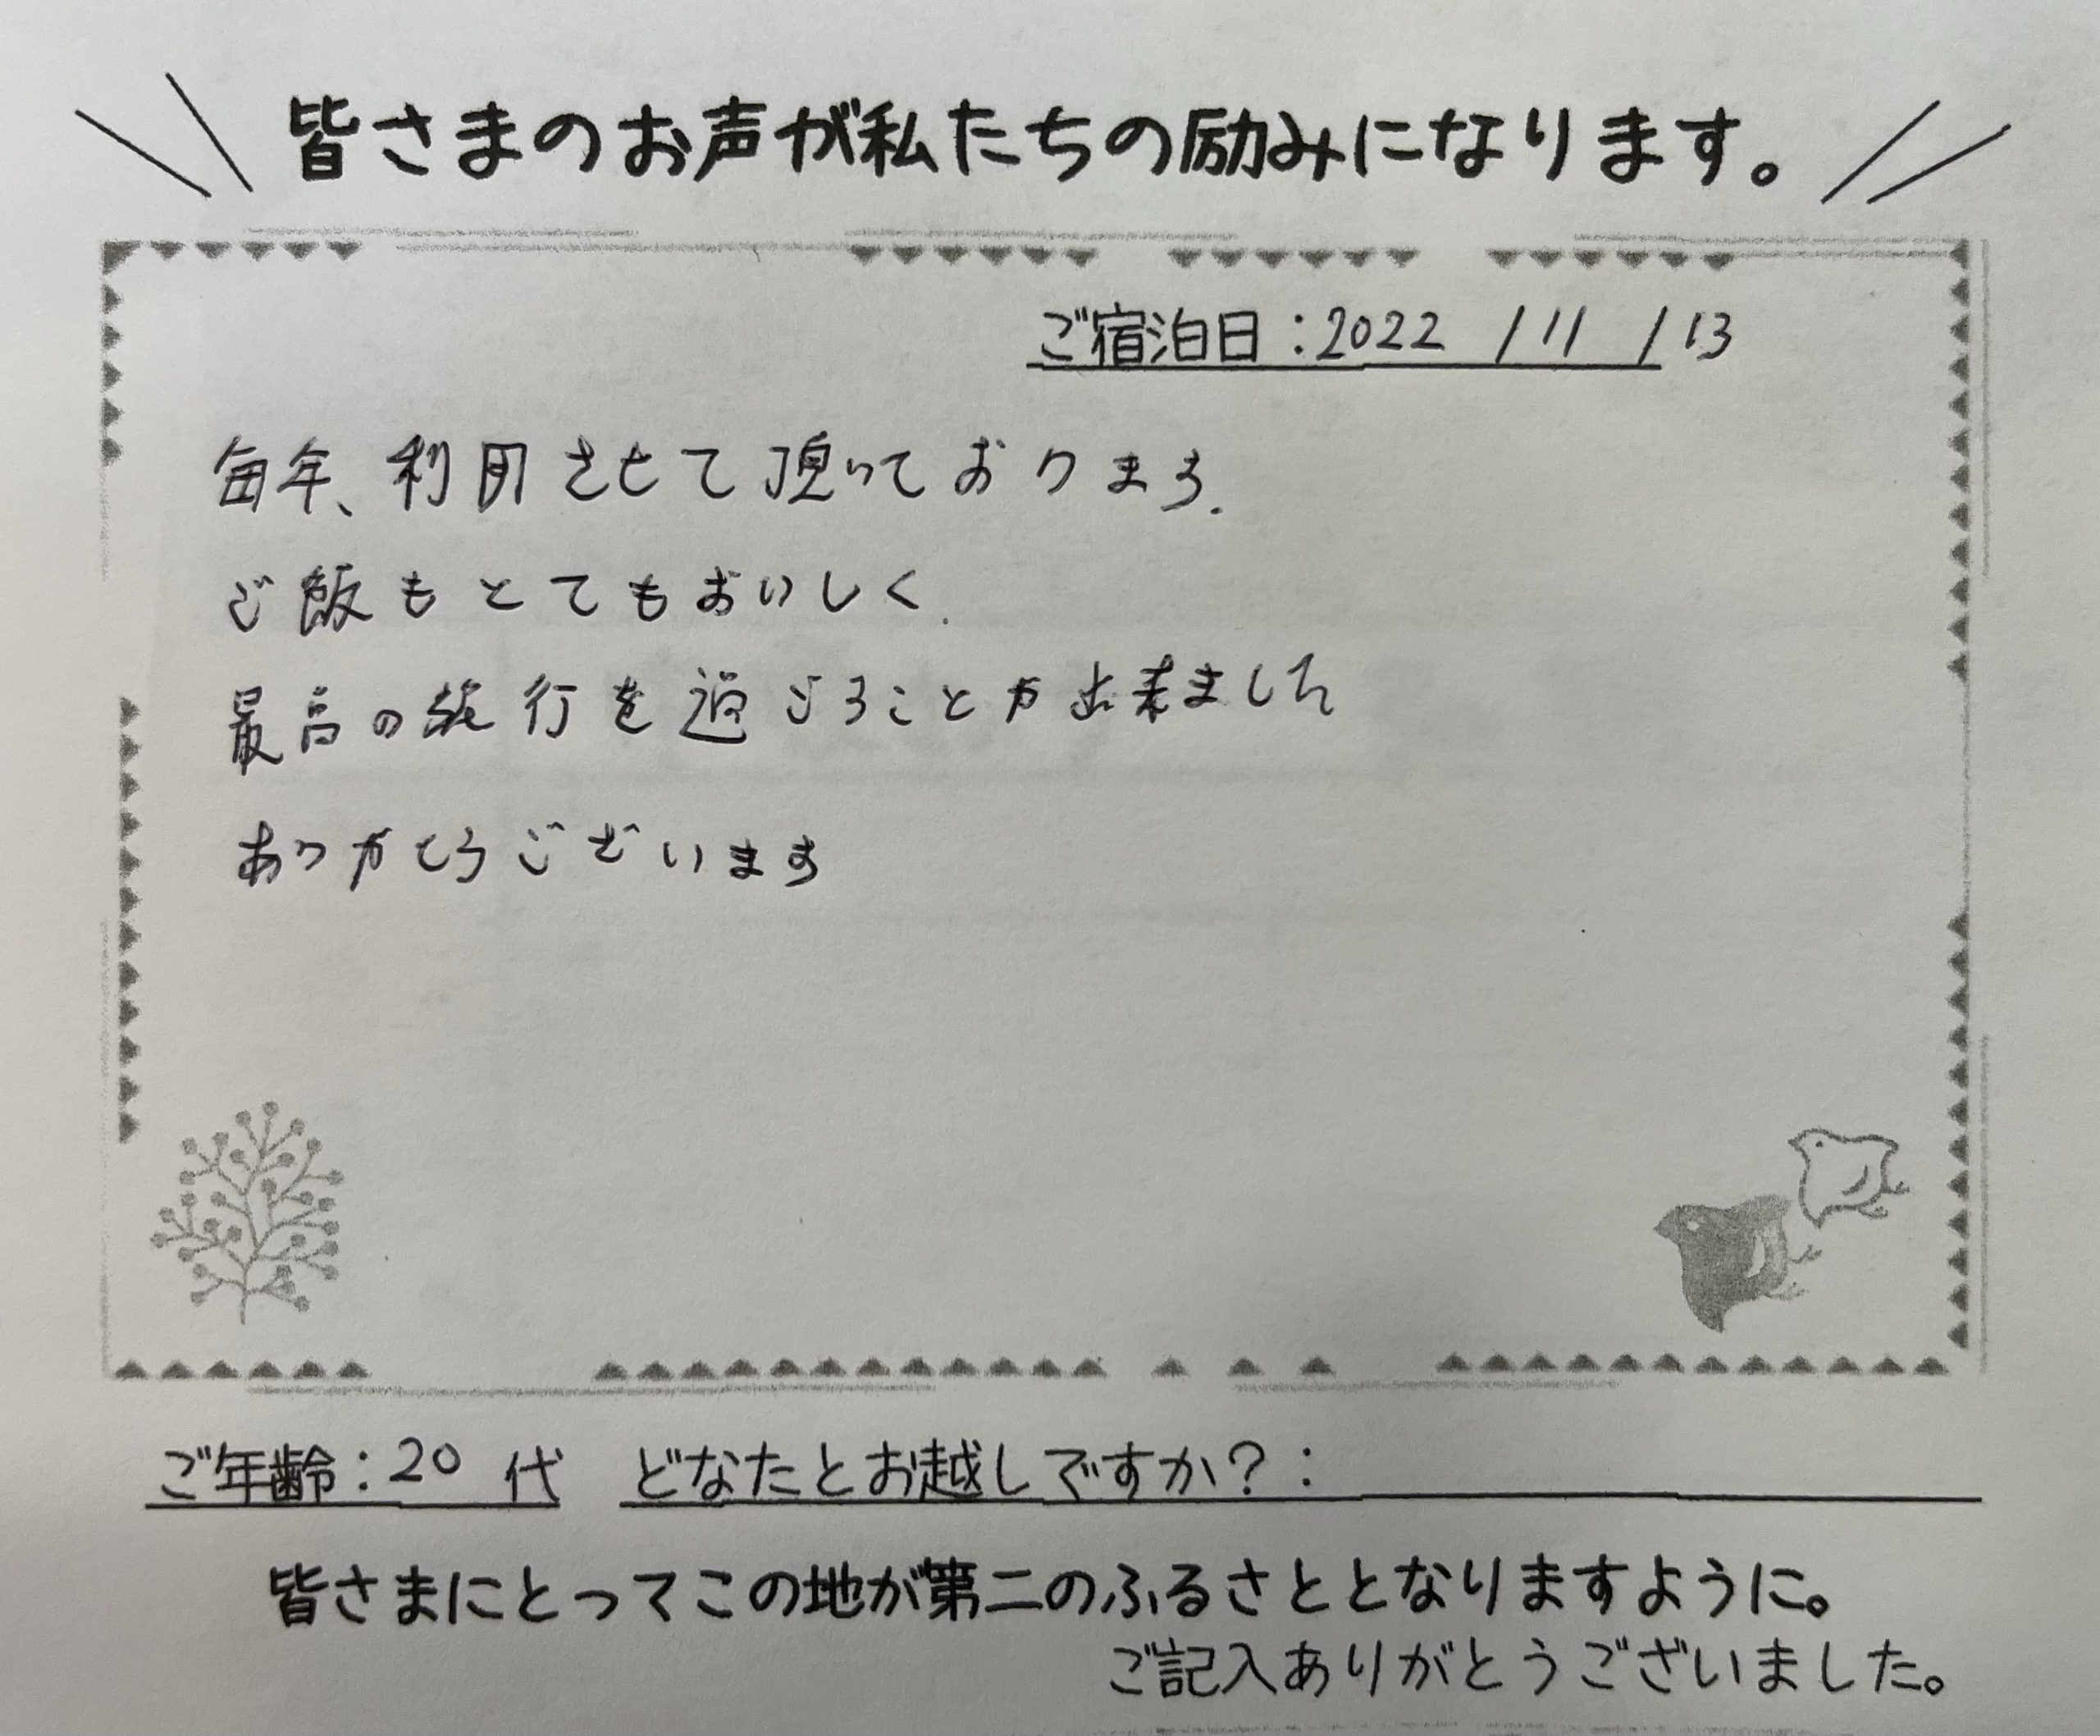 皆さまのお声が私たちの励みになります。
ご宿泊日：2022 / 11 / 13
毎年、利用させて頂いております.
ご飯もとてもおいしく.
最高の旅行を過ごることが出来ました
ありがとうございます
ご年齢：20 代 どなたとお越しですか？：
皆さまにとってこの地が第二のふるさととなりますように。
ご記入ありがとうございました。